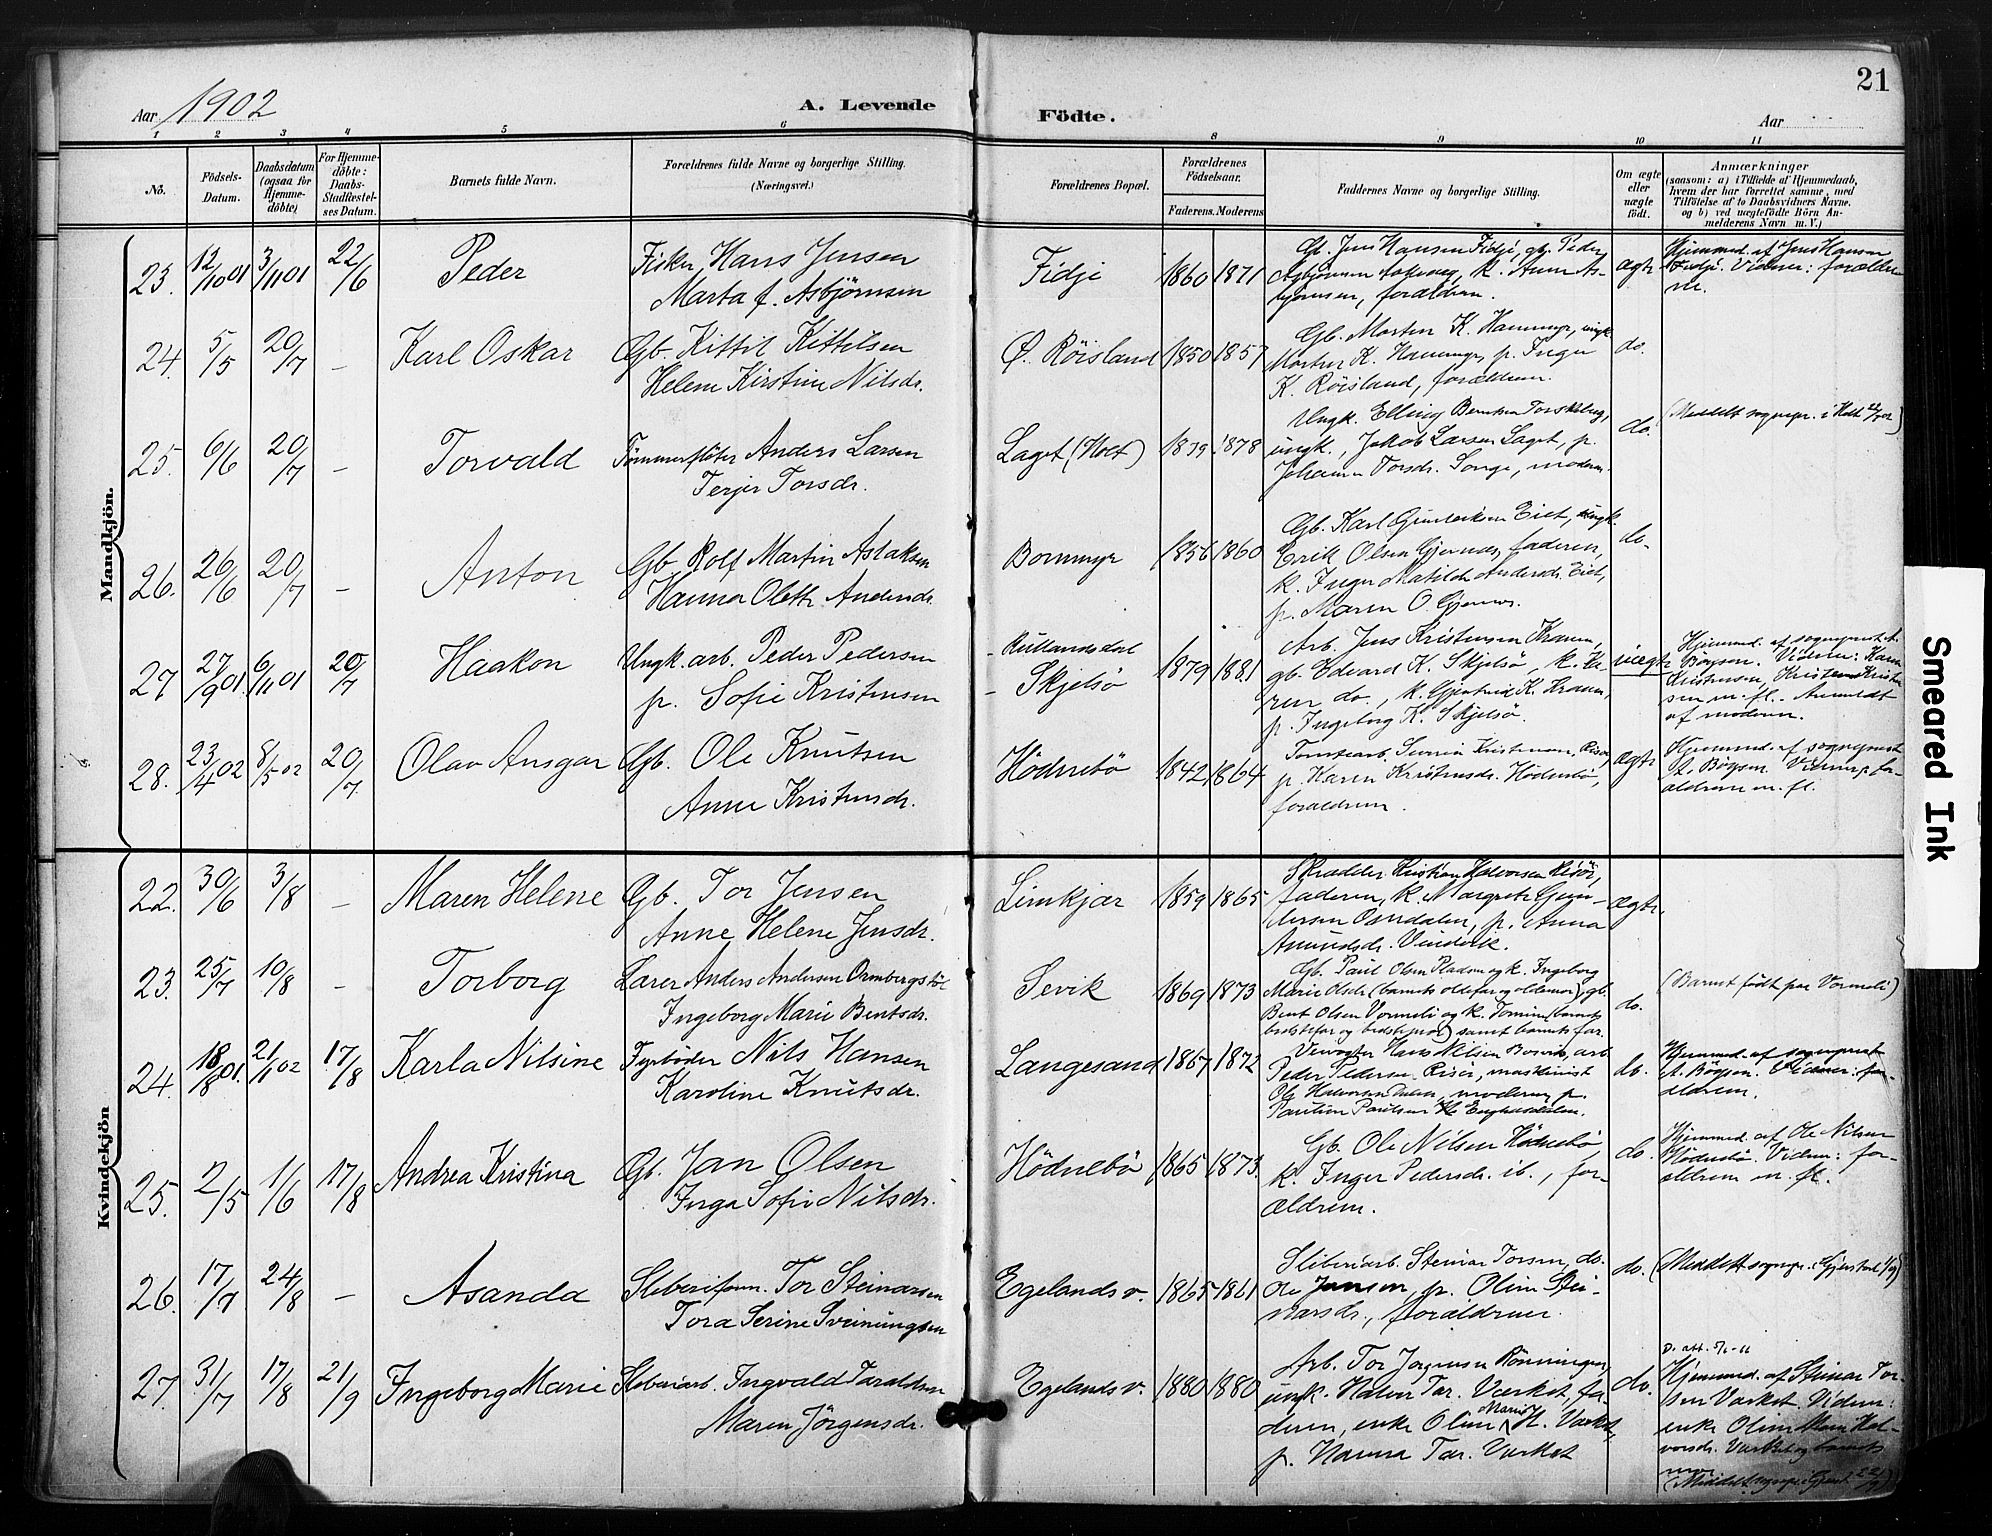 21
Aar 1902
A. Levende
Födte.
Aar
1 2 3 4 5 6 8 9 10 11
No.
Födsels-Datum.
Daabsdatum (ogsaa for Hjemme-döbte)
For Hjemme-döbte: Daabs-Stadfæstel-ses Datum.
Barnets fulde Navn.
Forældrenes fulde Navne og borgerlige Stilling. (Næringsvei.)
Forældrenes Bopæl.
Forældrenes Födselsaar.
Faderens. Moderens
Faddernes Navne og borgerlige Stilling.
Om ægte eller uægte födt.
Anmærkninger
(saasom: a) i Tilfælde af Hjemmedaab, hvem der har forrettet samme, med Tilföielse af to Daabsvidners Navne. og b) ved uægtefödte Börn An-melderens Navn m. V.)
Mandkjön.
23. 12/10 01 3/11 01 22/6 Peder
Fisker Hans Jensen
Marta f. Asbjørnsen
Fidje 1860 1871
Gb. Jens Hansen Fidje, gb. Peder
Asbjørnsen, k. Anne As-
bjørnsen, forældrene.
ægte
Hjemmed. af Jens Hansen
Fidje. Vidner: forældre-
ne.
24. 5/5 20/7 – Karl Oskar
Gb. Kittil Kittilsen
Helene Kirstine Nilsdr.
Ø. Röisland 1850 1857
Gb. Morten K. Hammyr, ungk.
Morten K. Hammyr, p. Inger
K. Röisland, forældrene.
do.
25. 6/6 20/7 – Torvald
Tømmerfløter Anders Larsen
Terjer Torsdr.
Laget (Holt) 1879 1878
Ungk. Elling Berntsen
ungk. Jakob Larsen Laget, p.
Johanne Torsdr. Songe, moderen.
do.
(Meddelt sognepr. i Holt)
26. 26/6 20/7 – Anton
Gb. Rolf Martin Aslaksen
Hanna Olette Andersdr.
Bommyr 1856 1860
Gb. Karl Gunleiksen Eiet, ungk.
Erik Olsen Gjernes, faderen,
k. Inger Matilde Andersdr. Eiet,
p. Maren O. Gjernes.
do.
27 27/9 01. 6/11 01 20/7 Haakon
Ungk. arb. Peder Pedersen
p. Sofie Kristensen
Skjelsö 1879 1881
Arb. Jens Kristensen
gb. Edvard K. Skjelsö, k. Ka-
ren do, k. Gjertrud K.
p. Ingeborg K. Skjelsö.
uægte
Hjemmed. af sogneprest A.
Bøgson. Vidner: Karen
Kristensen, Kristen Kristen-
sen m. fl. Anmeldt
af moderen.
28. 23/4 02 8/5 02 20/7 Olav Ansgar
Gb. Ole Knutsen
Anne Kristensdr.
Hödnebö 1842 1864
Kristensen, Risør,
p. Karen Kristensdr. Hödnebö,
forældrene.
ægte
Hjemmed. af sogneprest
A. Bøgson. Vidner: for-
ældrene m. fl.
Kvindekjön
22. 30/6 3/8 – Maren Helene
Gb. Tor Jensen
Anne Helene Jensdr.
Limkjær 1859 1865
Skrædder Kristian Halvorsen Risör,
faderen, k. Margrete Gun-
dersen Osmdalen, p. Anna
Amundsdr.
ægte.
23. 25/7 10/8 – Torborg
Lærer Anders Andersen
Ingeborg Marie Bentsdr.
Sevik 1869 1873
Gb. Paul Olsen og k. Ingeborg
Marie Olsdr (barnets oldefar og oldemor), gb.
Bent Olsen Vormeli og k. (barnets
bedstefar og bedstemor) samt barnets far.
do.
(Barnet født paa Vormeli)
24. 18/8 01. 21/1 02 17/8 Karla Nilsine
Fyrbøder Nils Hansen
Karoline Knutsdr.
Langesand 1867 1872
Hans Nilsen arb.
Peder Pedersen Risör, maskinist
Ole Halvorsen moderen, p.
do.
Hjemmed. af sogneprest
A. Bøgson. Vidner: for-
ældrene.
25. 2/5 1/6 17/8 Andrea Kristina
Gb. Jan Olsen
Inga Sofie Nilsdr.
Hödnebö 1865 1873.
Gb. Ole Nilsen Hödnebö,
k. Inger Pedersdr. ib., for-
ældrene.
do.
Hjemmed. af Ole Nilsen
Hödnebö. Vidner: for-
ældrene m. fl.
26. 17/7 24/8 – Asanda
Sliberiform. Tor Steinarsen
Tora Serine Sveinungsen
Egelands v. 1865 1861
Sliberiarb. Steinar Torsen, do.
Ole Jansen, p. Oline Stei-
narsdr., forældrene.
do.
(Meddelt sognepr. i Gjerstad)
27. 31/7 17/8 21/9 Ingeborg Marie
Sliberiarb. Ingvald Taraldsen
Maren Jörgensdr.
Egelands v. 1880 1880
Arb. Tor Jorgensen Rønningen,
ungk. Halvor Tar. Værket, fa-
deren, enke Oline Marie H. Værket,
p. Hanna Tar. Værket
do.
Hjemmed. af Steinar Tor-
sen Værket. Vidner:
enke Oline Marie Hal-
vorsdr. Værket og barnets
mor.
(Meddelt sognepr. i Gjerst. 22/9)
Smeared Ink